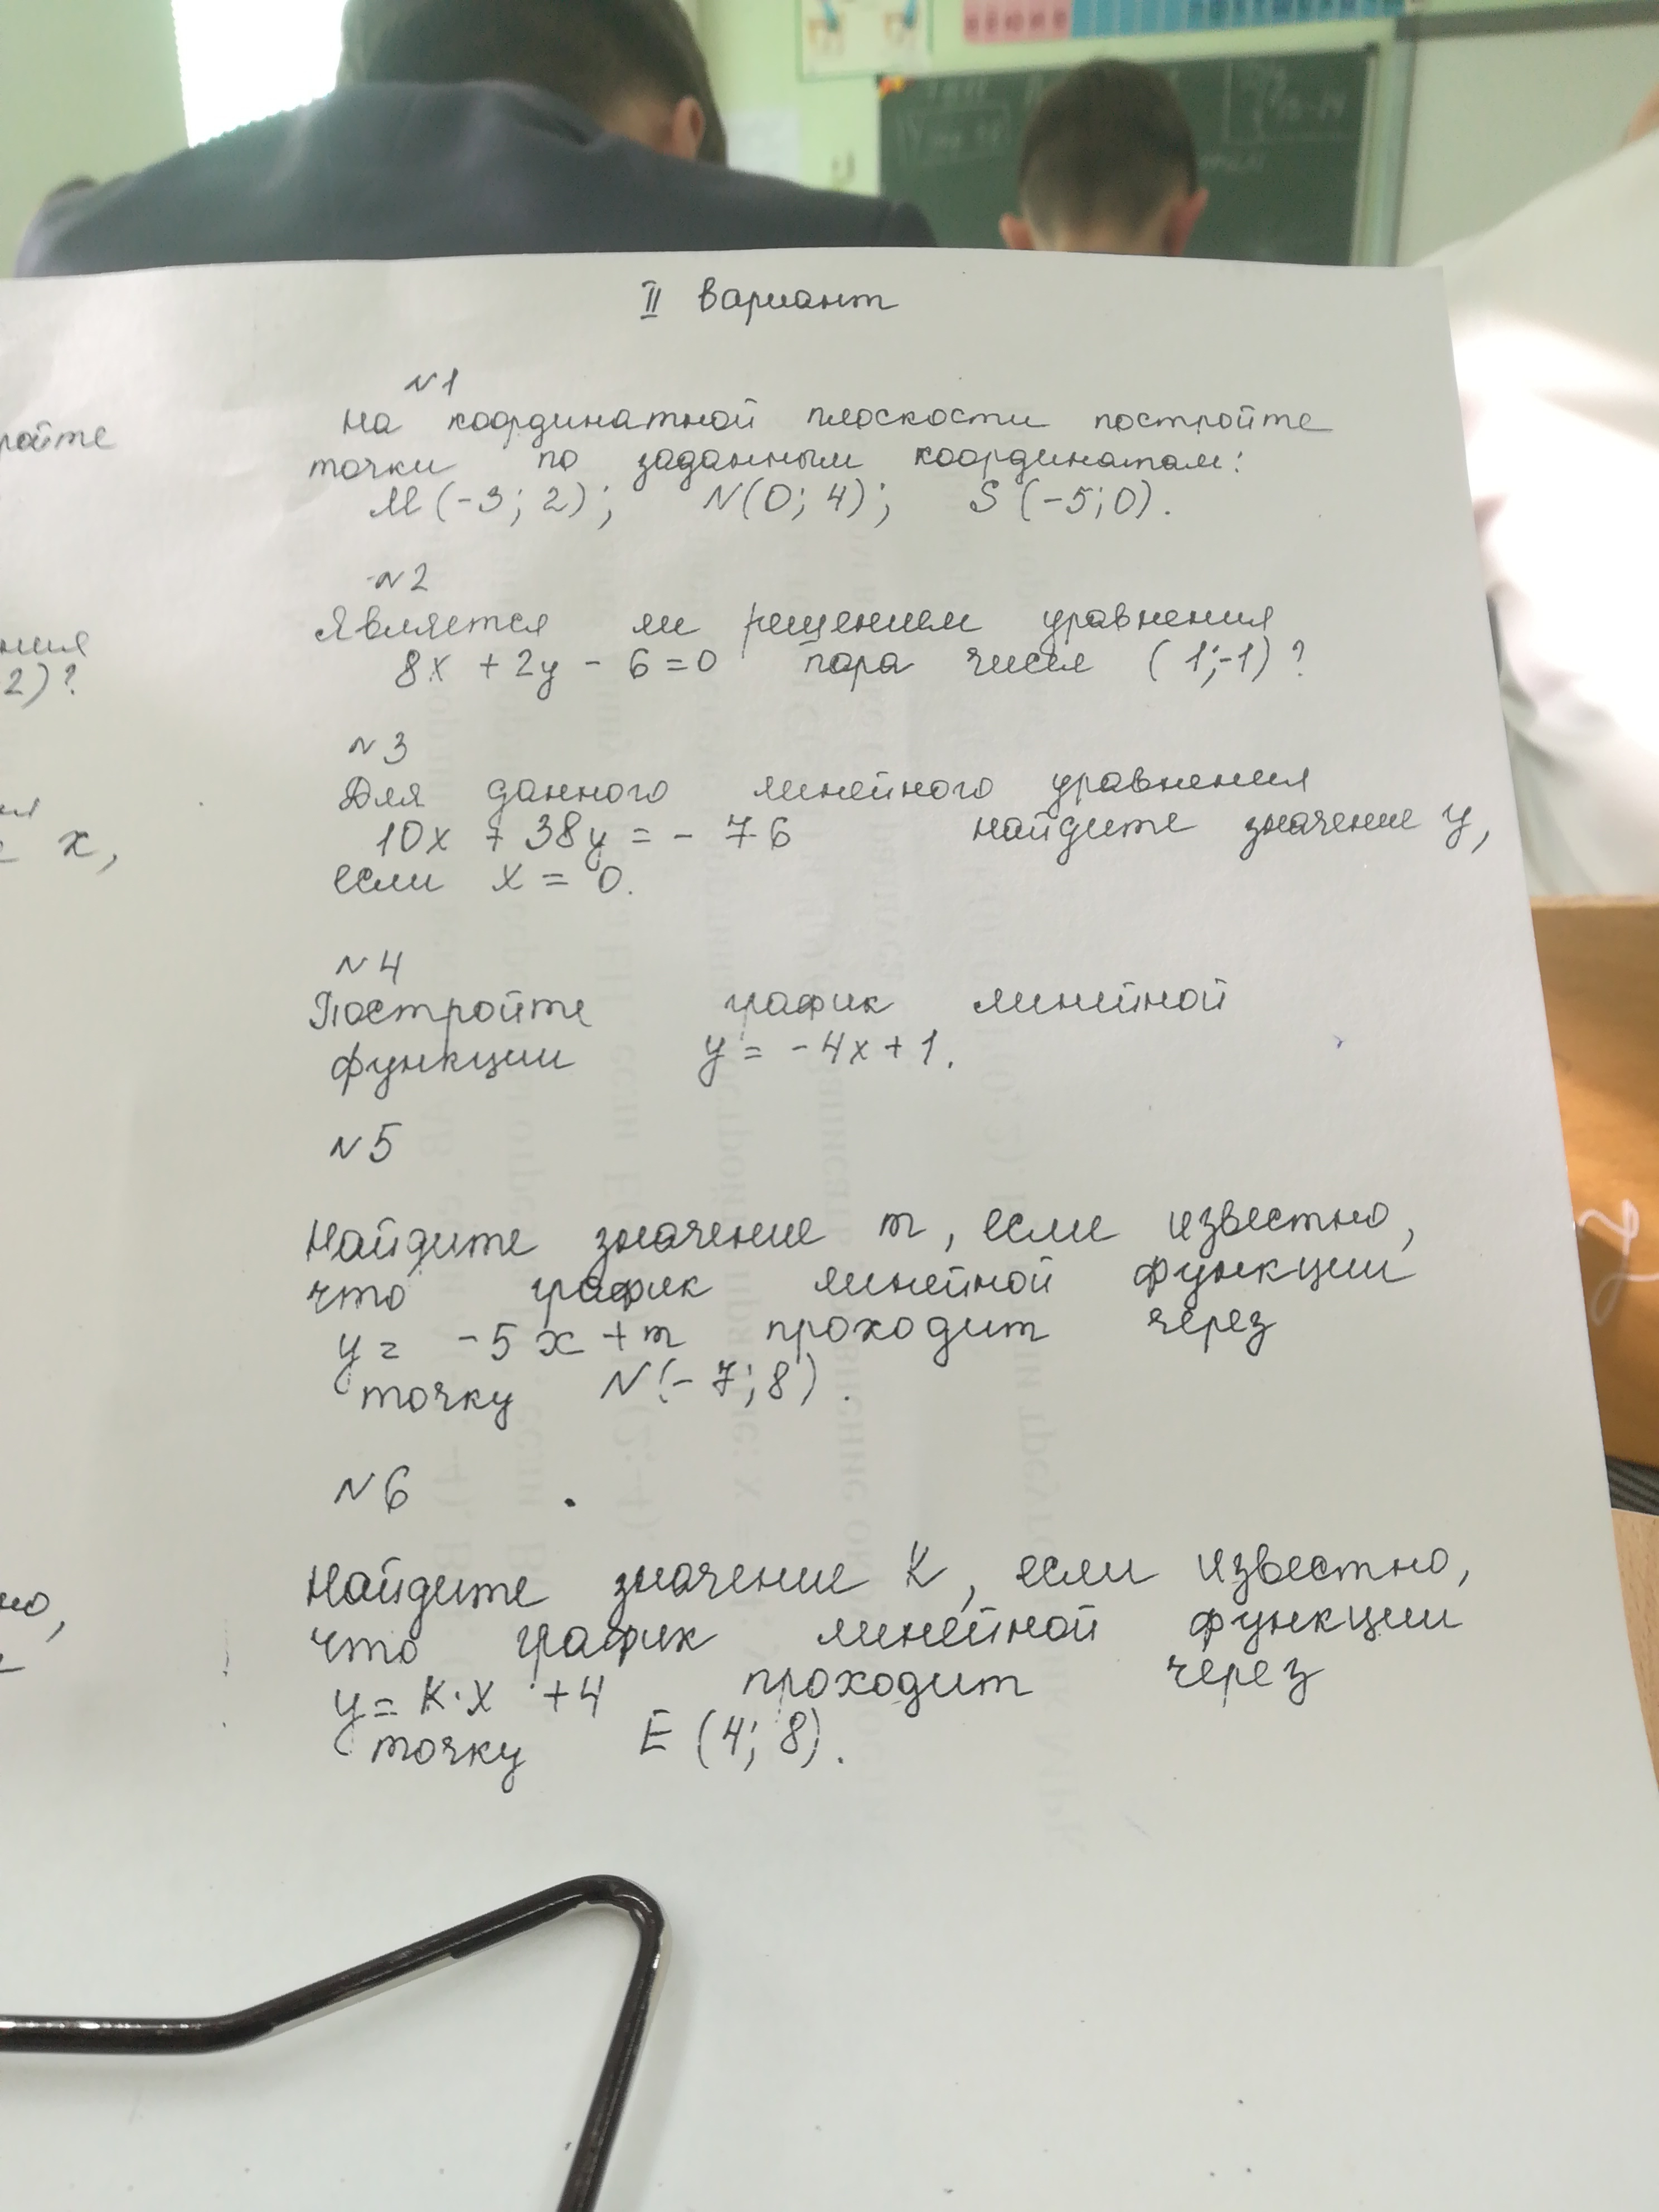 II вариант
N1
На координатной плоскости постройте
точки по заданным координатам:
M(-3; 2); N(0; 4); S(-5; 0).
N2
Является ли решением уравнения
8x + 2y - 6 = 0 пара чисел (1; -1)?
N3
Для данного линейного уравнения
10x + 38y = - 76 найдите значение y,
если x = 0.
N4
Постройте график линейной
функции y = -4x + 1.
N5
Найдите значение m, если известно,
что график линейной функции
y = -5x + m проходит через
точку N(-7; 8).
N6
Найдите значение K, если известно,
что график линейной функции
y = K·x + 4 проходит через
точку E (4; 8).
2)?
x,